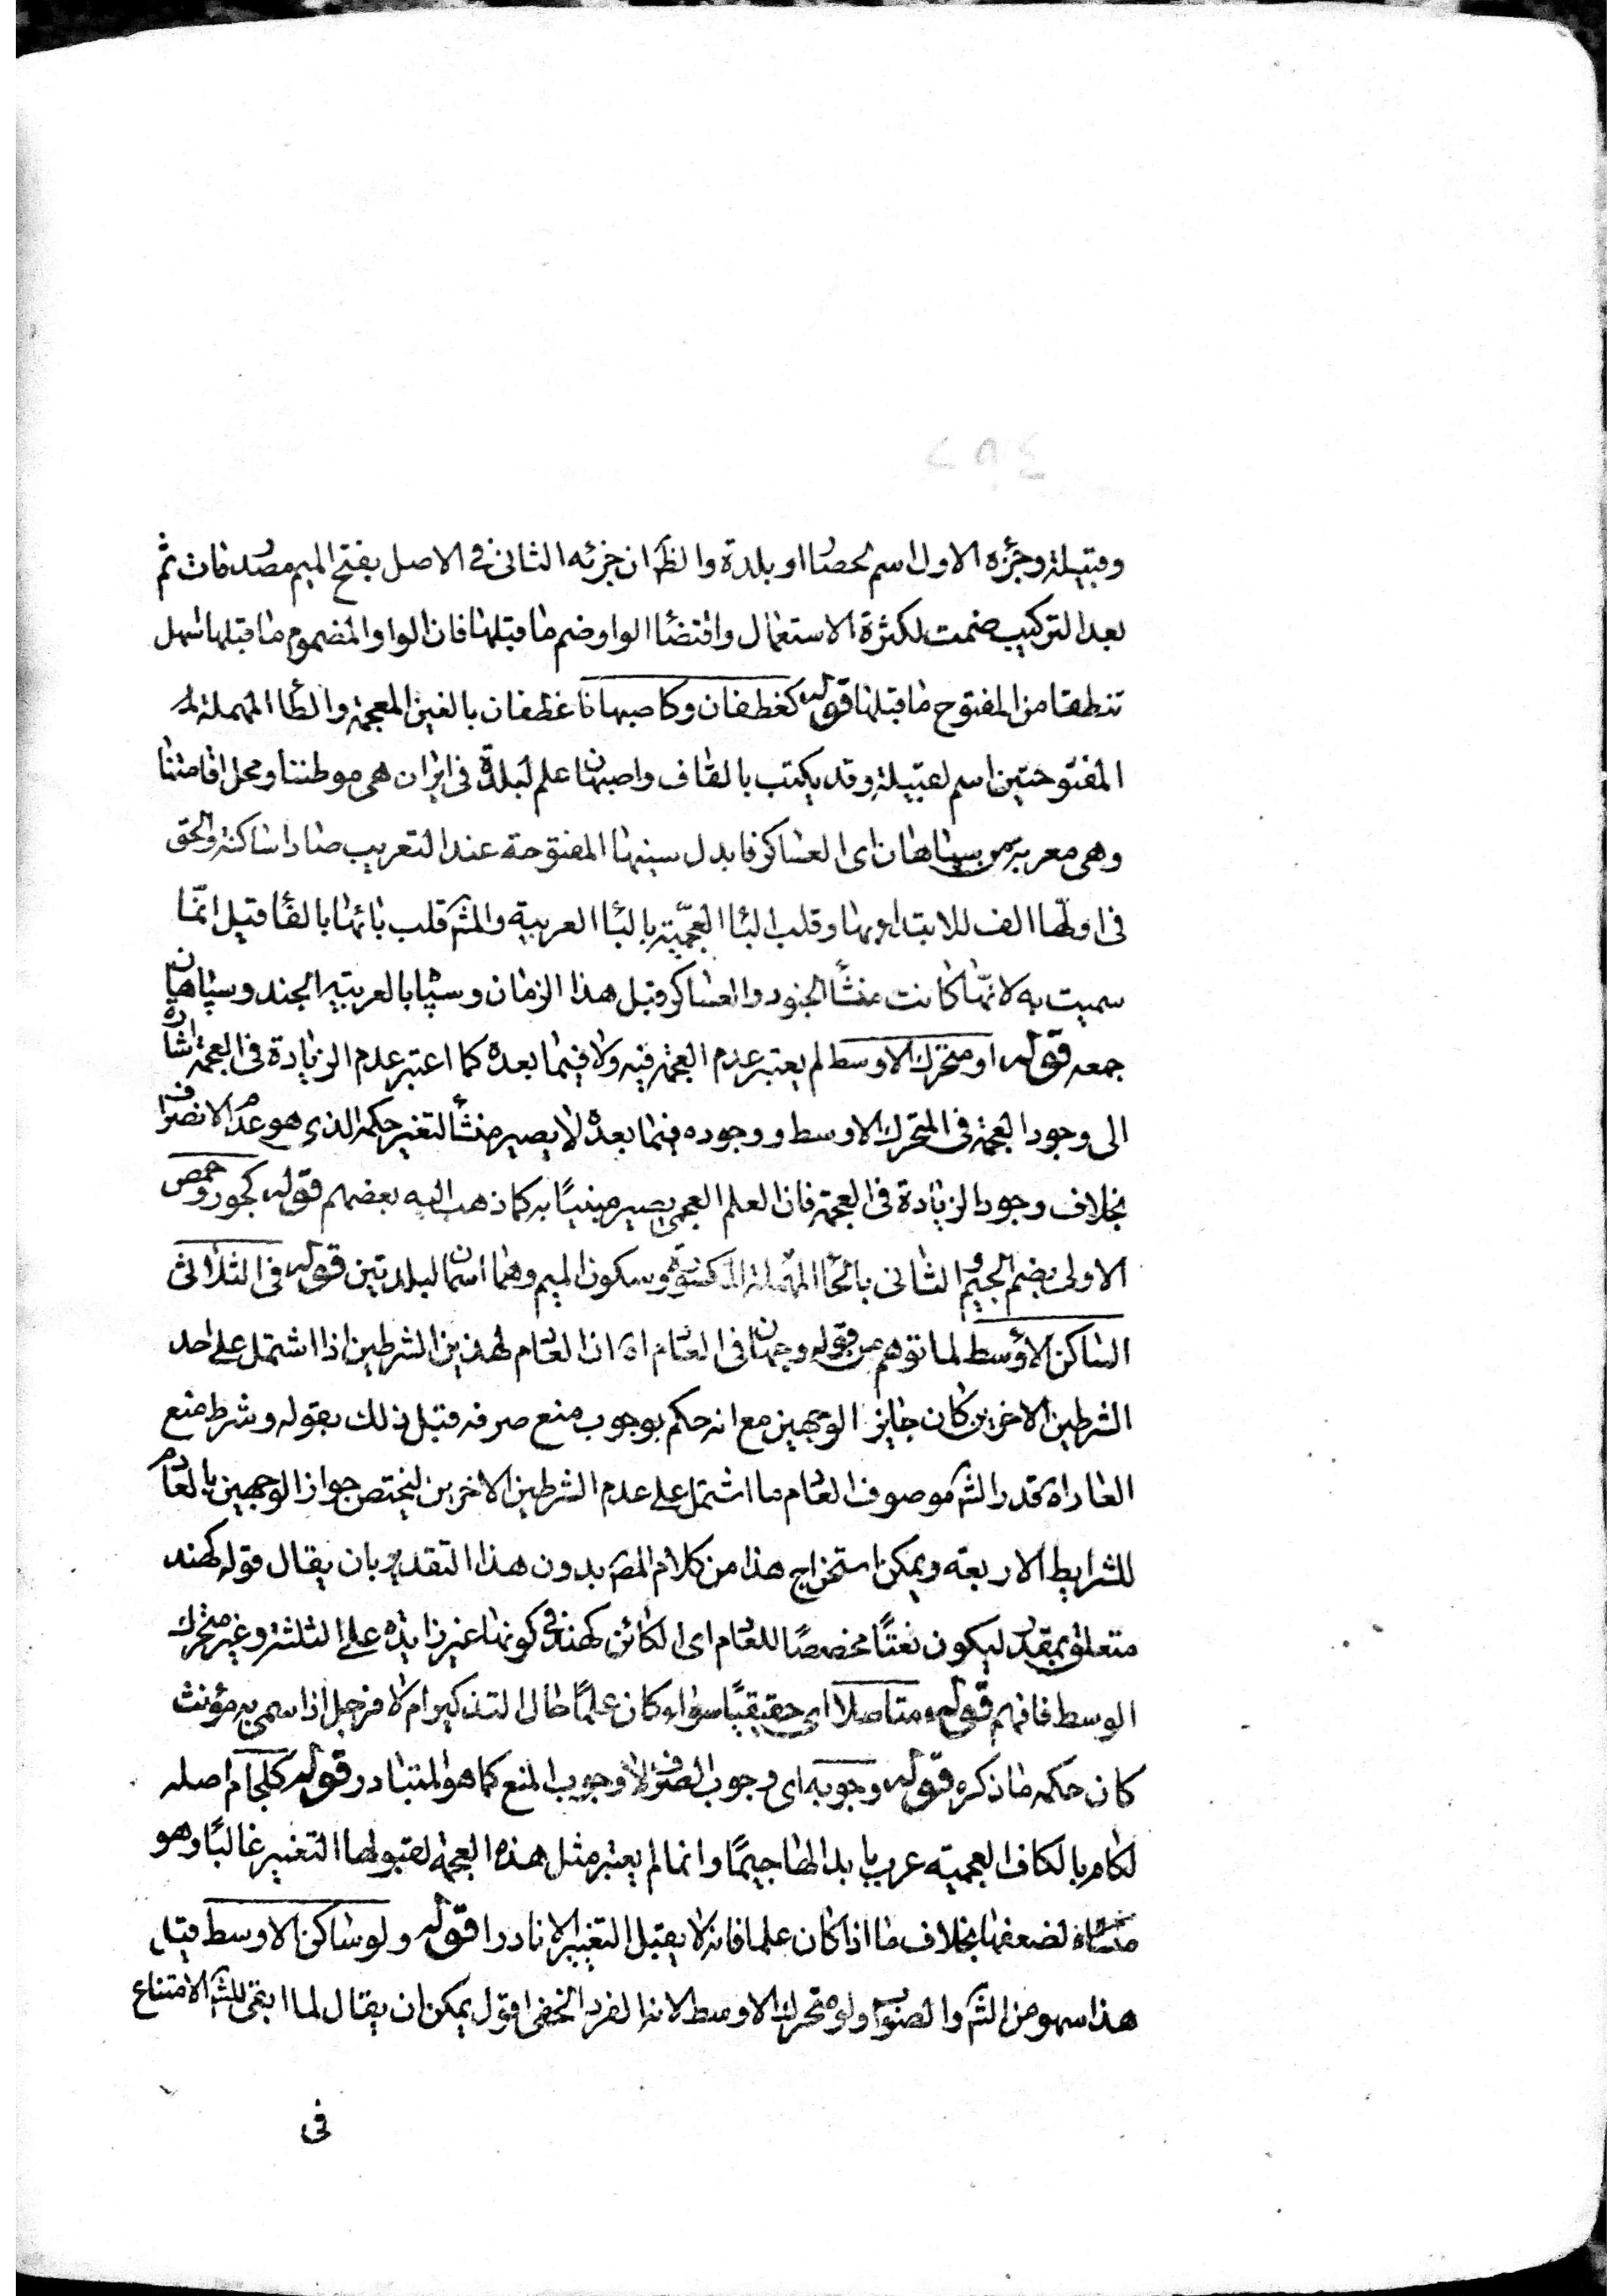 ٢٥٤
وقبيلة وجزؤه الاول اسم لحصا او بلدة والظ ان جزئه الثانى فى الاصل بفتح الميم مصدر مات ثم
بعد التركيب ضمت لكثرة الاستعمال واقتضاا الواو ضم ما قبلها فان الواو المضموم ما قبلها اسهل
تنطقا من المفتوح ما قبلها قوله كغطفان وكاصبهانا غطفان بالغين المعجمة والطاا المهملة
المفتوحتين اسم لقبيلة وقد يكتب بالقاف واصبهان علم لبلدة فى ايران هى موطننا ومحل اقامتنا
وهى معربة من سپاهان اى العساكر فابدل سينها المفتوحة عند التعريب صادا ساكنة والحق
فى اولها الف للابتداء بها وقلب الباا العجمية بالباا العربية والشه قلب بائها بالفاا قيل انما
سميت به لانها كانت منشأ الجنود والعساكر قبل هذا الزمان وسپا بالعربية الجند وسپاهان
جمعه قوله او متحرك الاوسط لم يعتبر عدم العجمة فيه ولا فيما بعده كما اعتبر عدم الزيادة فى العجمة اشارة
الى وجود العجمة فى المتحرك الاوسط ووجوده فيما بعده لا يصير منشأ لتغير حكمه الذى هو عدم الانصراف
بخلاف وجود الزيادة فى العجمة فان العلم العجمى يصير مبنيًا به كما ذهب اليه بعضهم قوله كجور وحمص
الاولى بضم الجيم و الثانى بالحاا المهملة المكسورة وسكون الميم وهما اسمان لبلدتين قوله فى الثلاثى
الساكن الاوسط لما توهم من قوله وجهان فى العادم اه ان العادم لهذين الشرطين اذا اشتمل على احد
الشرطين الاخرين كان جايز الوجهين مع انه حكم بوجوب منع صرفه قبل ذلك بقوله وشرط منع
العار اه قدر الشه موصوف العادم ما اشتمل على عدم الشرطين الاخرين ليختص جواز الوجهين بالعادم
للشرايط الاربعة ويمكن استخراج هذا من كلام المصه بدون هذا التقدير بان يقال قوله كهند
متعلق بمقدر ليكون نعتًا مخصصًا للعادم اى الكائن كهند فى كونها غير زايدة على الثلثة وغير متحرك
الوسط فافهم قوله متاصلا اى حقيقيًا سواء كان علمًا حال التذكير ام لا فرجل اذا سمى به مؤنث
كان حكمه ما ذكره قوله وجوبه اى وجوب الصرف لا وجوب المنع كما هو المتبادر قوله كلجام اصله
لكام بالكاف العجمية عرب بابدالها جيمًا وانما لم يعتبر مثل هذه العجمة لقبولها التغيير غالبًا وهو
لضعفها بخلاف ما اذا كان علما فانه لا يقبل التغيير الا نادرا قوله ولو ساكن الاوسط قيل
هذا سهو من الشه والصواب ولو متحرك الاوسط لانه الفرد الخفى اقول يمكن ان يقال لما ابقى للشه الامتناع
فى